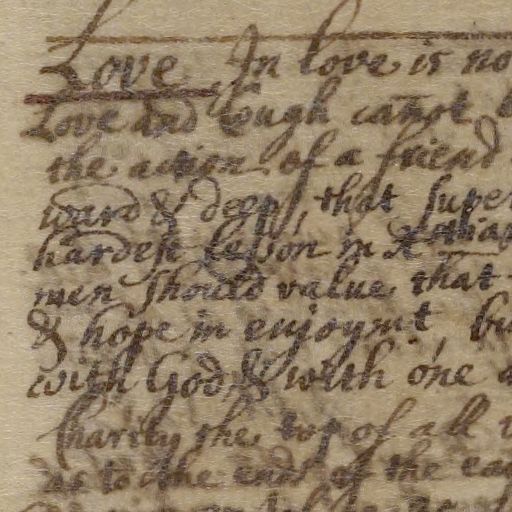 Love In love is no
Love and Cough cañot
the action of a friend
ward & deep, that super
hardest lesson in Xtian
men should value that
& hope in enjoymt, bu
with God, & with one a
Charity the top of all
as to the ends of the ea